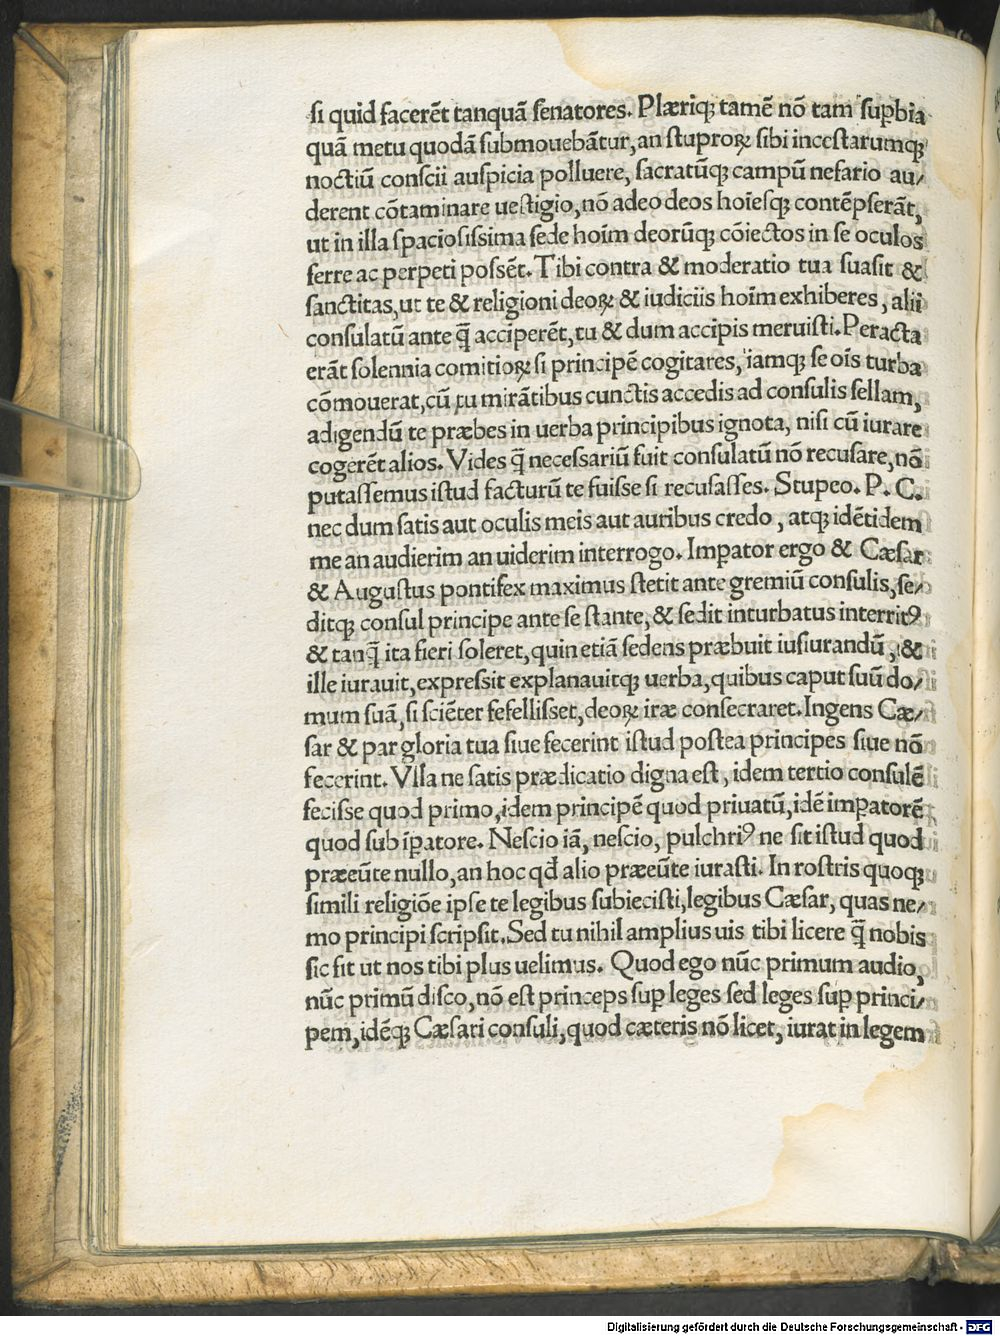 si quid facerēt tanquā senatores. Plæriqꝫ tamē nō tam suꝑbia
quā metu quodā submouebātur, an stuproꝝ sibi incestarumqꝫ
noctiū conscii auspicia polluere, sacratūqꝫ campū nefario au/
derent cōtaminare uestigio, nō adeo deos hoīesqꝫ contēpserāt,
ut in illa spaciosissima sede hoīm deorūqꝫ cōiectos in se oculos
ferre ac perpeti possēt. Tibi contra & moderatio tua suasit &
sanctitas, ut te & religioni deoꝝ & iudiciis hoīm exhiberes, alii
consulatū ante q̄ acciperēt, tu & dum accipis meruisti. Peracta
erāt solennia comitioꝝ si principē cogitares, iamqꝫ se oīs turba
cōmouerat, cū tu mirātibus cunctis accedis ad consulis sellam,
adigendū te præbes in uerba principibus ignota, nisi cū iurare
cogerēt alios. Vides q̄ necessariū fuit consulatū nō recusare, nō
putassemus istud facturū te fuisse si recusasses. Stupeo. P. C.
nec dum satis aut oculis meis aut auribus credo, atqꝫ idētidem
me an audierim an uiderim interrogo. Imꝑator ergo & Cæsar
& Augustus pontifex maximus stetit ante gremiū consulis, se/
ditqꝫ consul principe ante se stante, & sedit inturbatus interritꝰ
& tanq̄ ita fieri soleret, quin etiā sedens præbuit iusiurandū, &
ille iurauit, expressit explanauitqꝫ uerba, quibus caput suū do/
mum suā, si sciēter fefellisset, deoꝝ iræ consecraret. Ingens Cæ/
sar & par gloria tua siue fecerint istud postea principes siue nō
fecerint. Vlla ne satis prædicatio digna est, idem tertio consulē
fecisse quod primo, idem principē quod priuatū, idē imꝑatorē
quod sub īꝑatore. Nescio iā, nescio, pulchriꝰ ne sit istud quod
præeūte nullo, an hoc qđ alio præeūte iurasti. In rostris quoqꝫ
simili religiōe ipse te legibus subiecisti, legibus Cæsar, quas ne/
mo principi scripsit. Sed tu nihil amplius uis tibi licere q̄ nobis
sic fit ut nos tibi plus uelimus. Quod ego nūc primum audio,
nūc primū disco, nō est princeps suꝑ leges sed leges suꝑ princi/
pem, idēqꝫ Cæsari consuli, quod cæteris nō licet, iurat in legem
Digitalisierung gefördert durch die Deutsche Forschungsgemeinschaft - DFG